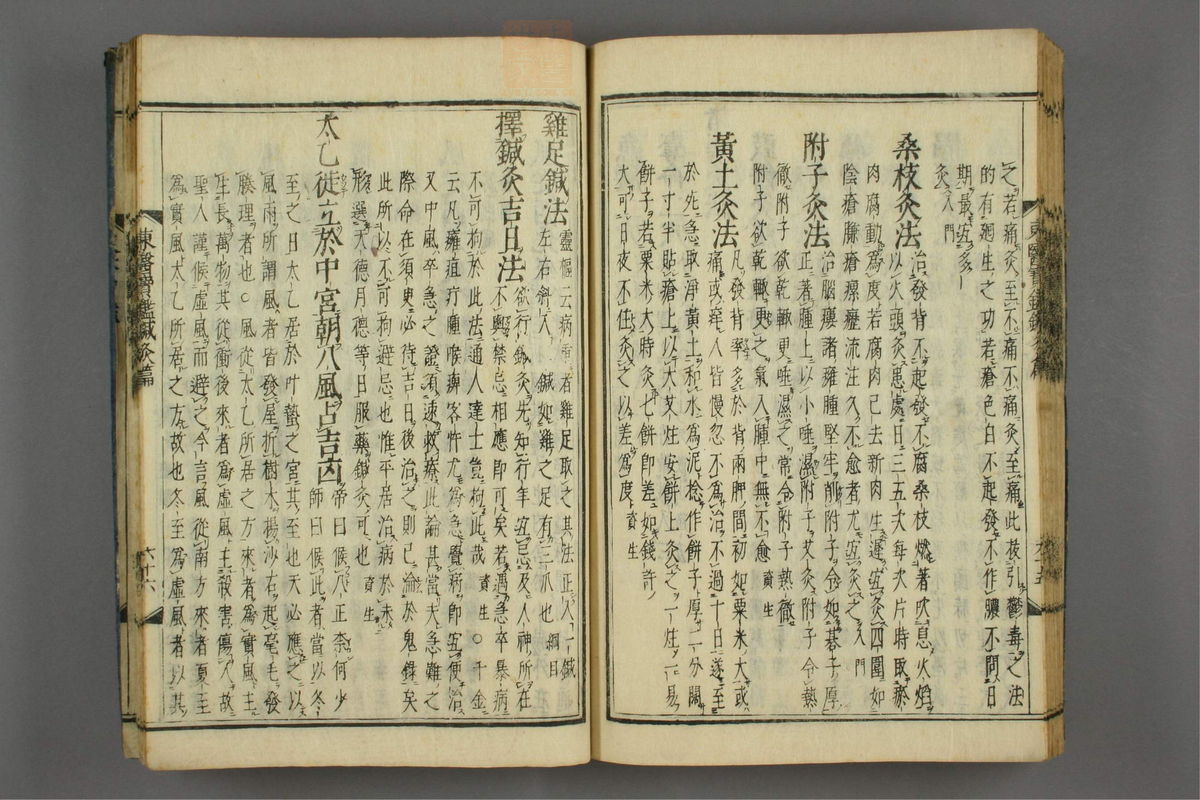 之若痛灸至不痛不痛灸至痛此拔引鬱毒之法
的有廻生之功若瘡色白不起發不作膿不問日
期最宜多
灸入門
桑枝灸法治發背不起發不腐桑枝燃著吹息火焰
以火頭灸患處日三五次每次片時取瘀
肉腐動爲度若腐肉已去新肉生遲宜灸四圍如
陰瘡臁瘡瘰癧流注久不愈者尤宜灸之入門
附子灸法治腦瘻諸癰腫堅牢削附子令如碁子厚
正著腫上以小唾濕附子艾灸附子令熱
徹附子欲乾輒更唾濕之常令附子熱徹
附子欲乾輒更之氣入腫中無不愈資生
黃土灸法凡發背率多於背兩胛間初如粟米大或
痛或痒人皆慢忽不爲治不過十日遂至
於死急取淨黃土和水爲泥捻作餅子厚二分闊
一寸半貼瘡上以大艾炷安餅上灸之一炷一易
餅子若粟米大時灸七餅即差如錢許
大可日夜不住灸之以差爲度資生
雞足鍼法靈樞云病重者雞足取之其法正入一鍼
左右斜入二鍼如雞之足有三爪也綱目
擇鍼灸吉日法欲行鍼灸先知行年宜忌及人神所在
不與禁忌相應即可矣若遇急卒暴病
不可拘於此法通人達士豈拘此哉資生○千金
云凡癰疽疔腫喉痺客忤尤爲急覺病即宜便治
又中風卒急之證須速救療此論甚當夫急難之
際命在須臾必待吉日後治之則已淪於鬼錄矣
此所以不可拘避忌也惟平居治病於未
形選天德月德等日服藥鍼灸可也資生
太乙徙立於中宮朝八風占吉凶帝曰候八正柰何少
師曰候此者當以冬
至之日太乙居於叶蟄之宮其至也天必應之以
風雨所謂風者皆發屋折樹木揚沙石起毫毛發
腠理者也○風從太乙所居之方來者爲實風主
生長萬物其從衝後來者爲虛風主殺害傷人故
聖人謹候虛風而避之今言風從南方來者夏至
爲實風太乙所居之方故也冬至爲虛風者以其
東醫寶鑑鍼灸篇
六十六